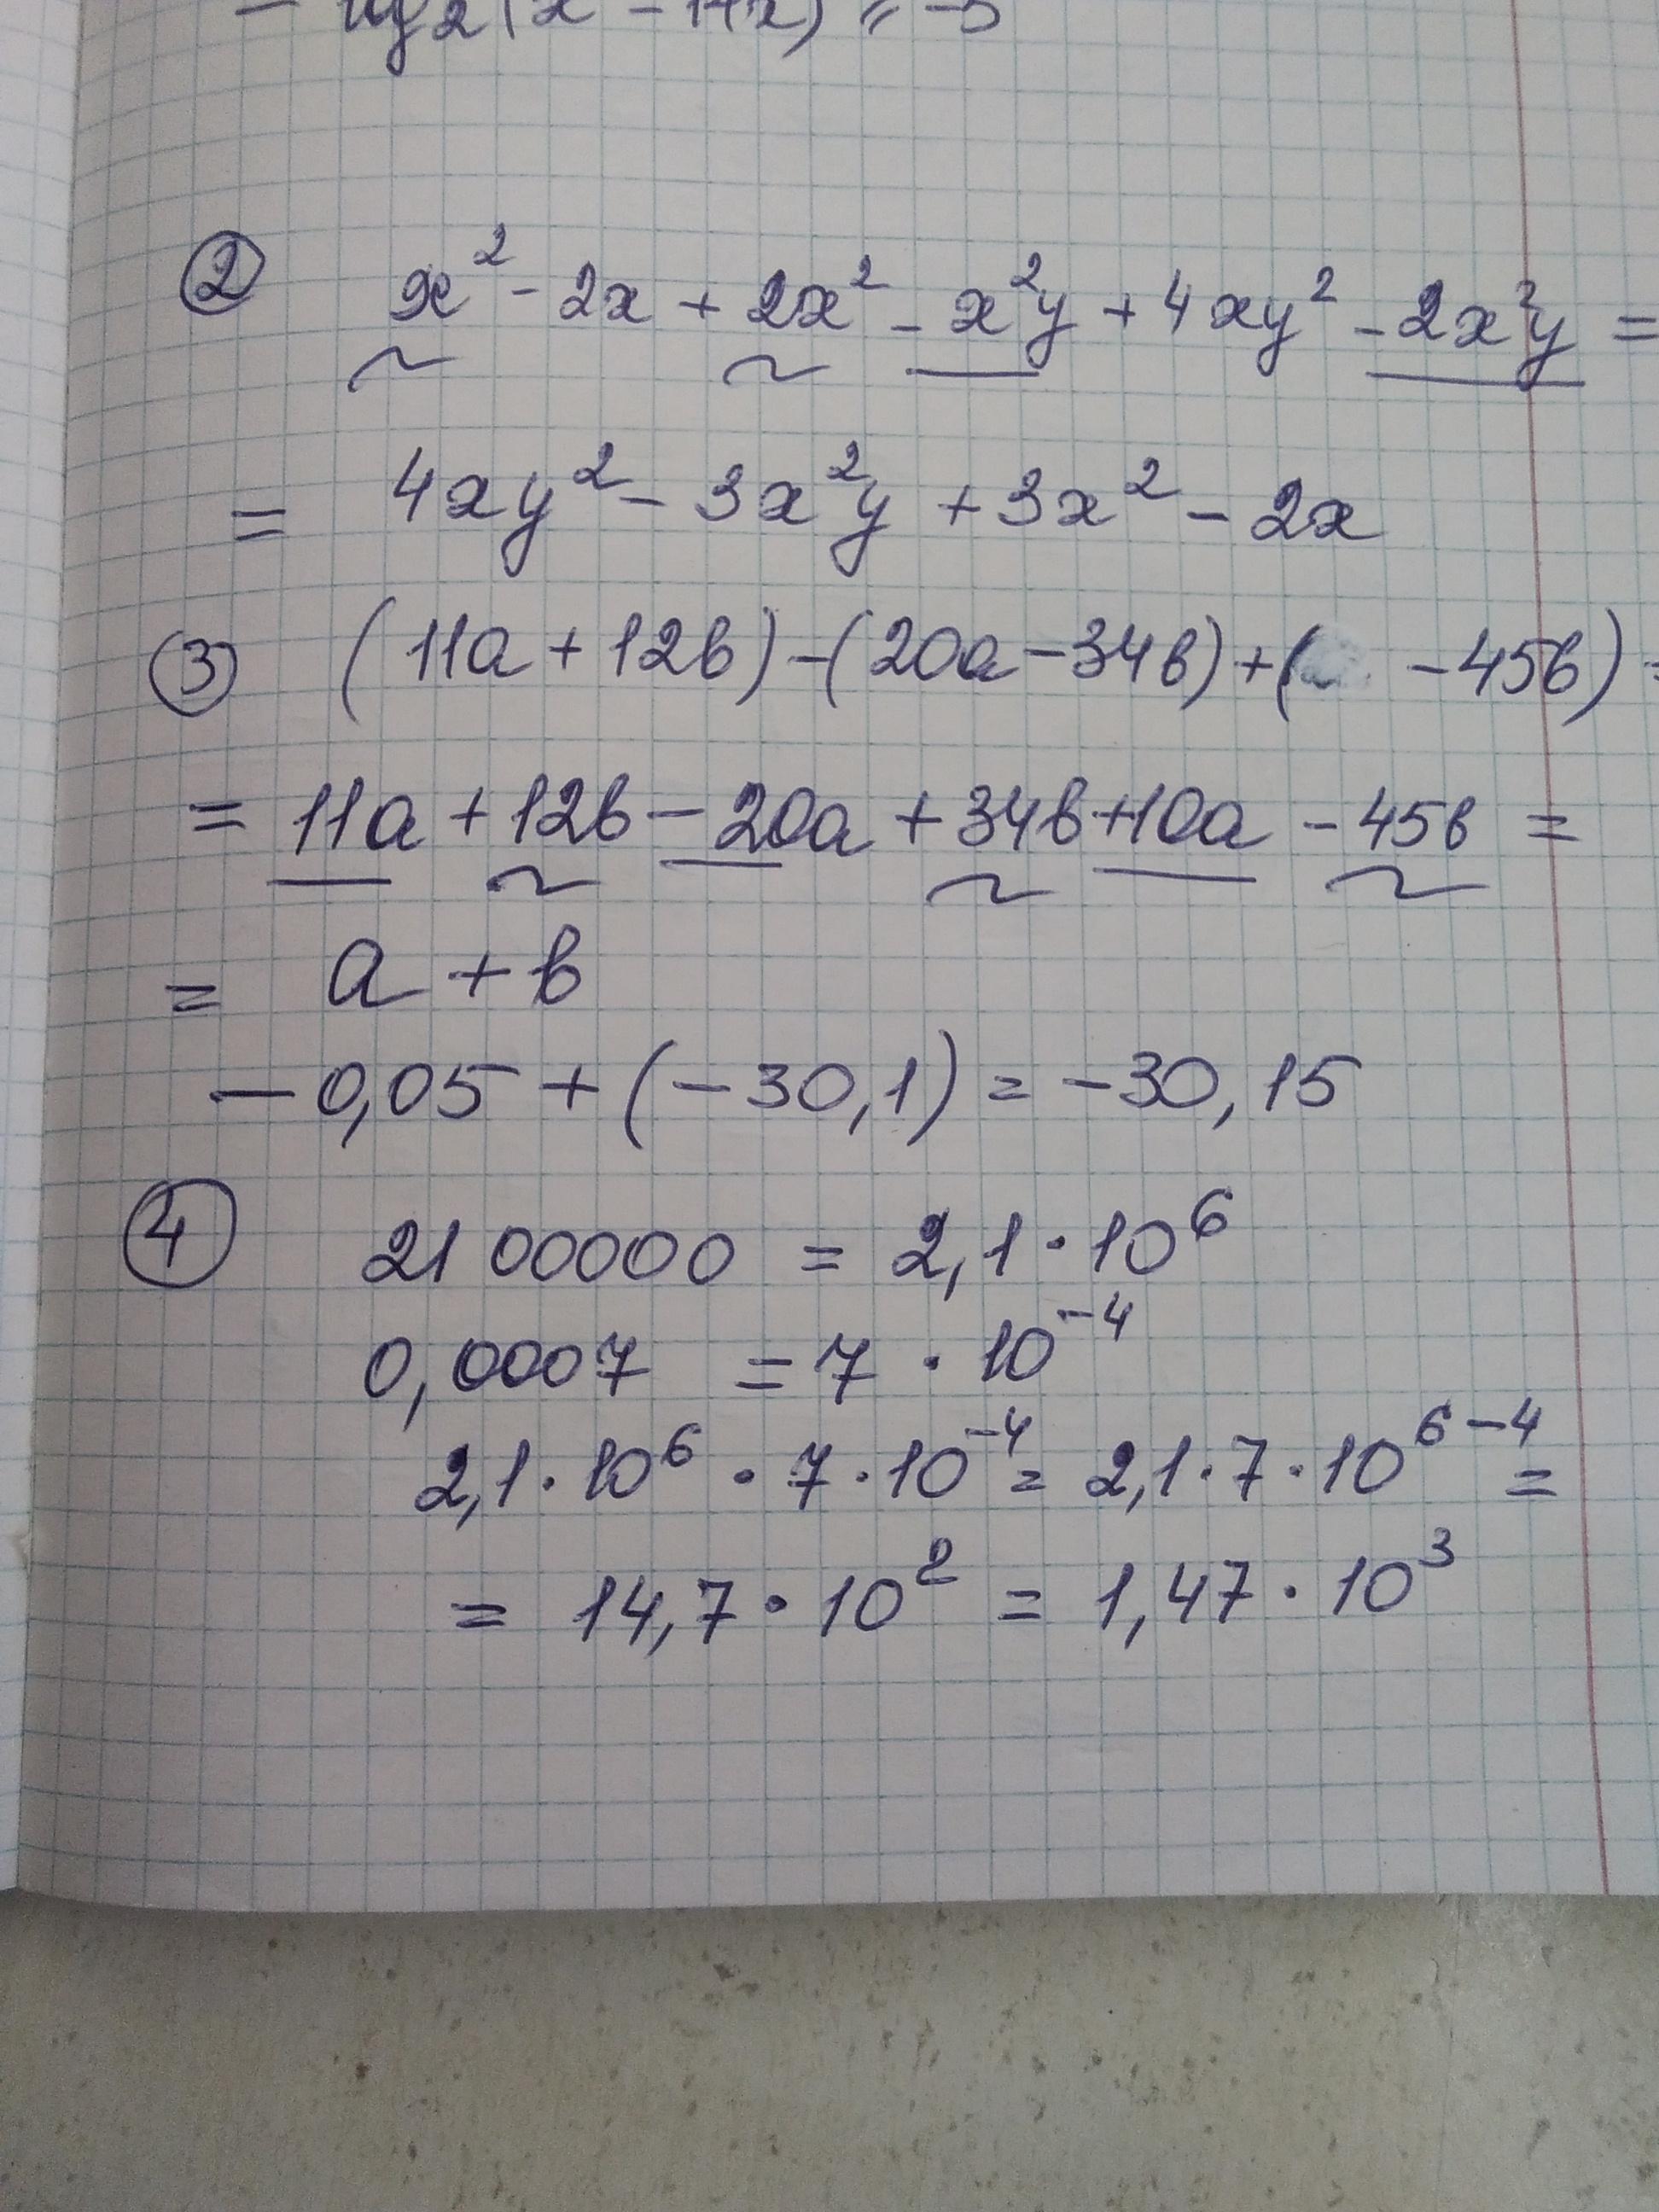 ② x² - 2x + 2x² - x²y + 4xy² - 2x²y =
= 4xy² - 3x²y + 3x² - 2x
③ (11a + 12b) - (20a - 34b) + ( - 45b)
= 11a + 12b - 20a + 34b + 10a - 45b =
= a + b
- 0,05 + (-30,1) = -30,15
④ 2100000 = 2,1 · 10⁶
0,0007 = 7 · 10⁻⁴
2,1 · 10⁶ · 7 · 10⁻⁴ = 2,1 · 7 · 10⁶⁻⁴ =
= 14,7 · 10² = 1,47 · 10³